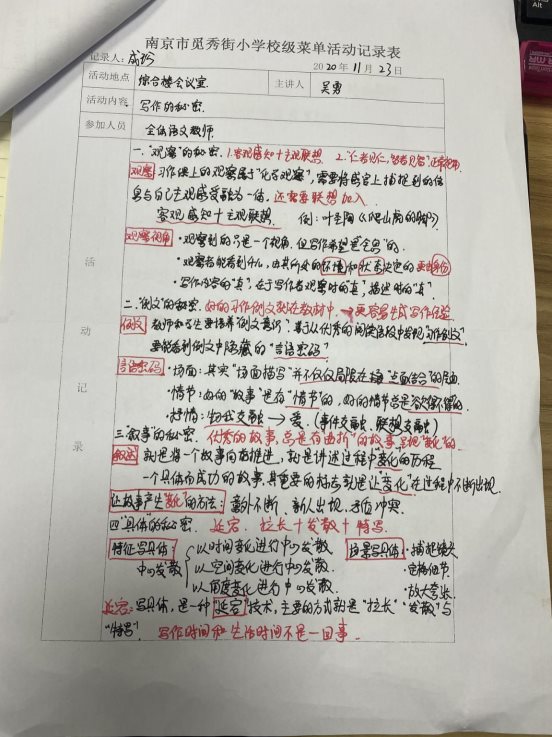 Alt
南京市觅秀街小学校级菜单活动记录表
记录人：成玲 2020年11月23日
活动地点 综合楼会议室 主讲人 吴勇
活动内容 写作的秘密.
参加人员 全体语文教师
活动记录
一."观察"的秘密. 1.客观感知+主观联想 2."仁者见仁,智者见智"
观察 习作课上的观察属于"化合观察",需要将感官上捕捉到的信
息与自己主观感受融为一体,还需要联想加入.
客观感知+主观联想. 例:叶圣陶《爬山虎的脚》
观察视角 ·观察到的只是一个视角,但写作希望是"全息"的.
·观察者能看到什么,由其所处的环境和状态决定的
·写作内容的"真",在于写作者观察时的"真",描述时的"真".
二."例文"的秘密. 好的习作例文就在教材中. →更容易生成写作经验
例文 教师和学生要培养"例文意识",善于从优秀的阅读中发现"习作例文"
要能看到例文中隐藏的"言语密码"
言语密码 ·场面:其实"场面描写"并不仅仅局限在"点面结合"的层面.
·情节:好的"故事"是有"情节"的,好的情节总是一波三折的.
·抒情:物我交融→爱.(事件交融、联想交融)
三."故事"的秘密. 优秀的故事,总是有曲折"的故事呈现"变化"的.
叙述 就是将一个故事向前推进,就是讲述过程中变化的历程
一个具体而成功的故事,其重要的标志就是让"变化"在过程中不断出现.
让故事产生"变化"的方法: 意外不断 新人出现 矛盾冲突.
四."具体的"秘密. 延宕. 拉长+发散+特写.
特征写具体: 中心发散
以时间变化进行中心发散
以空间变化进行中心发散.
以角度变化进行中心发散.
场景写具体: ·捕捉镜头
·定格细节.
·放大学长.
延宕:写具体,是一种"延宕"技术,主要的方式就是"拉长"、"发散"与
"特写". 写作时间和生活时间不是一回事.